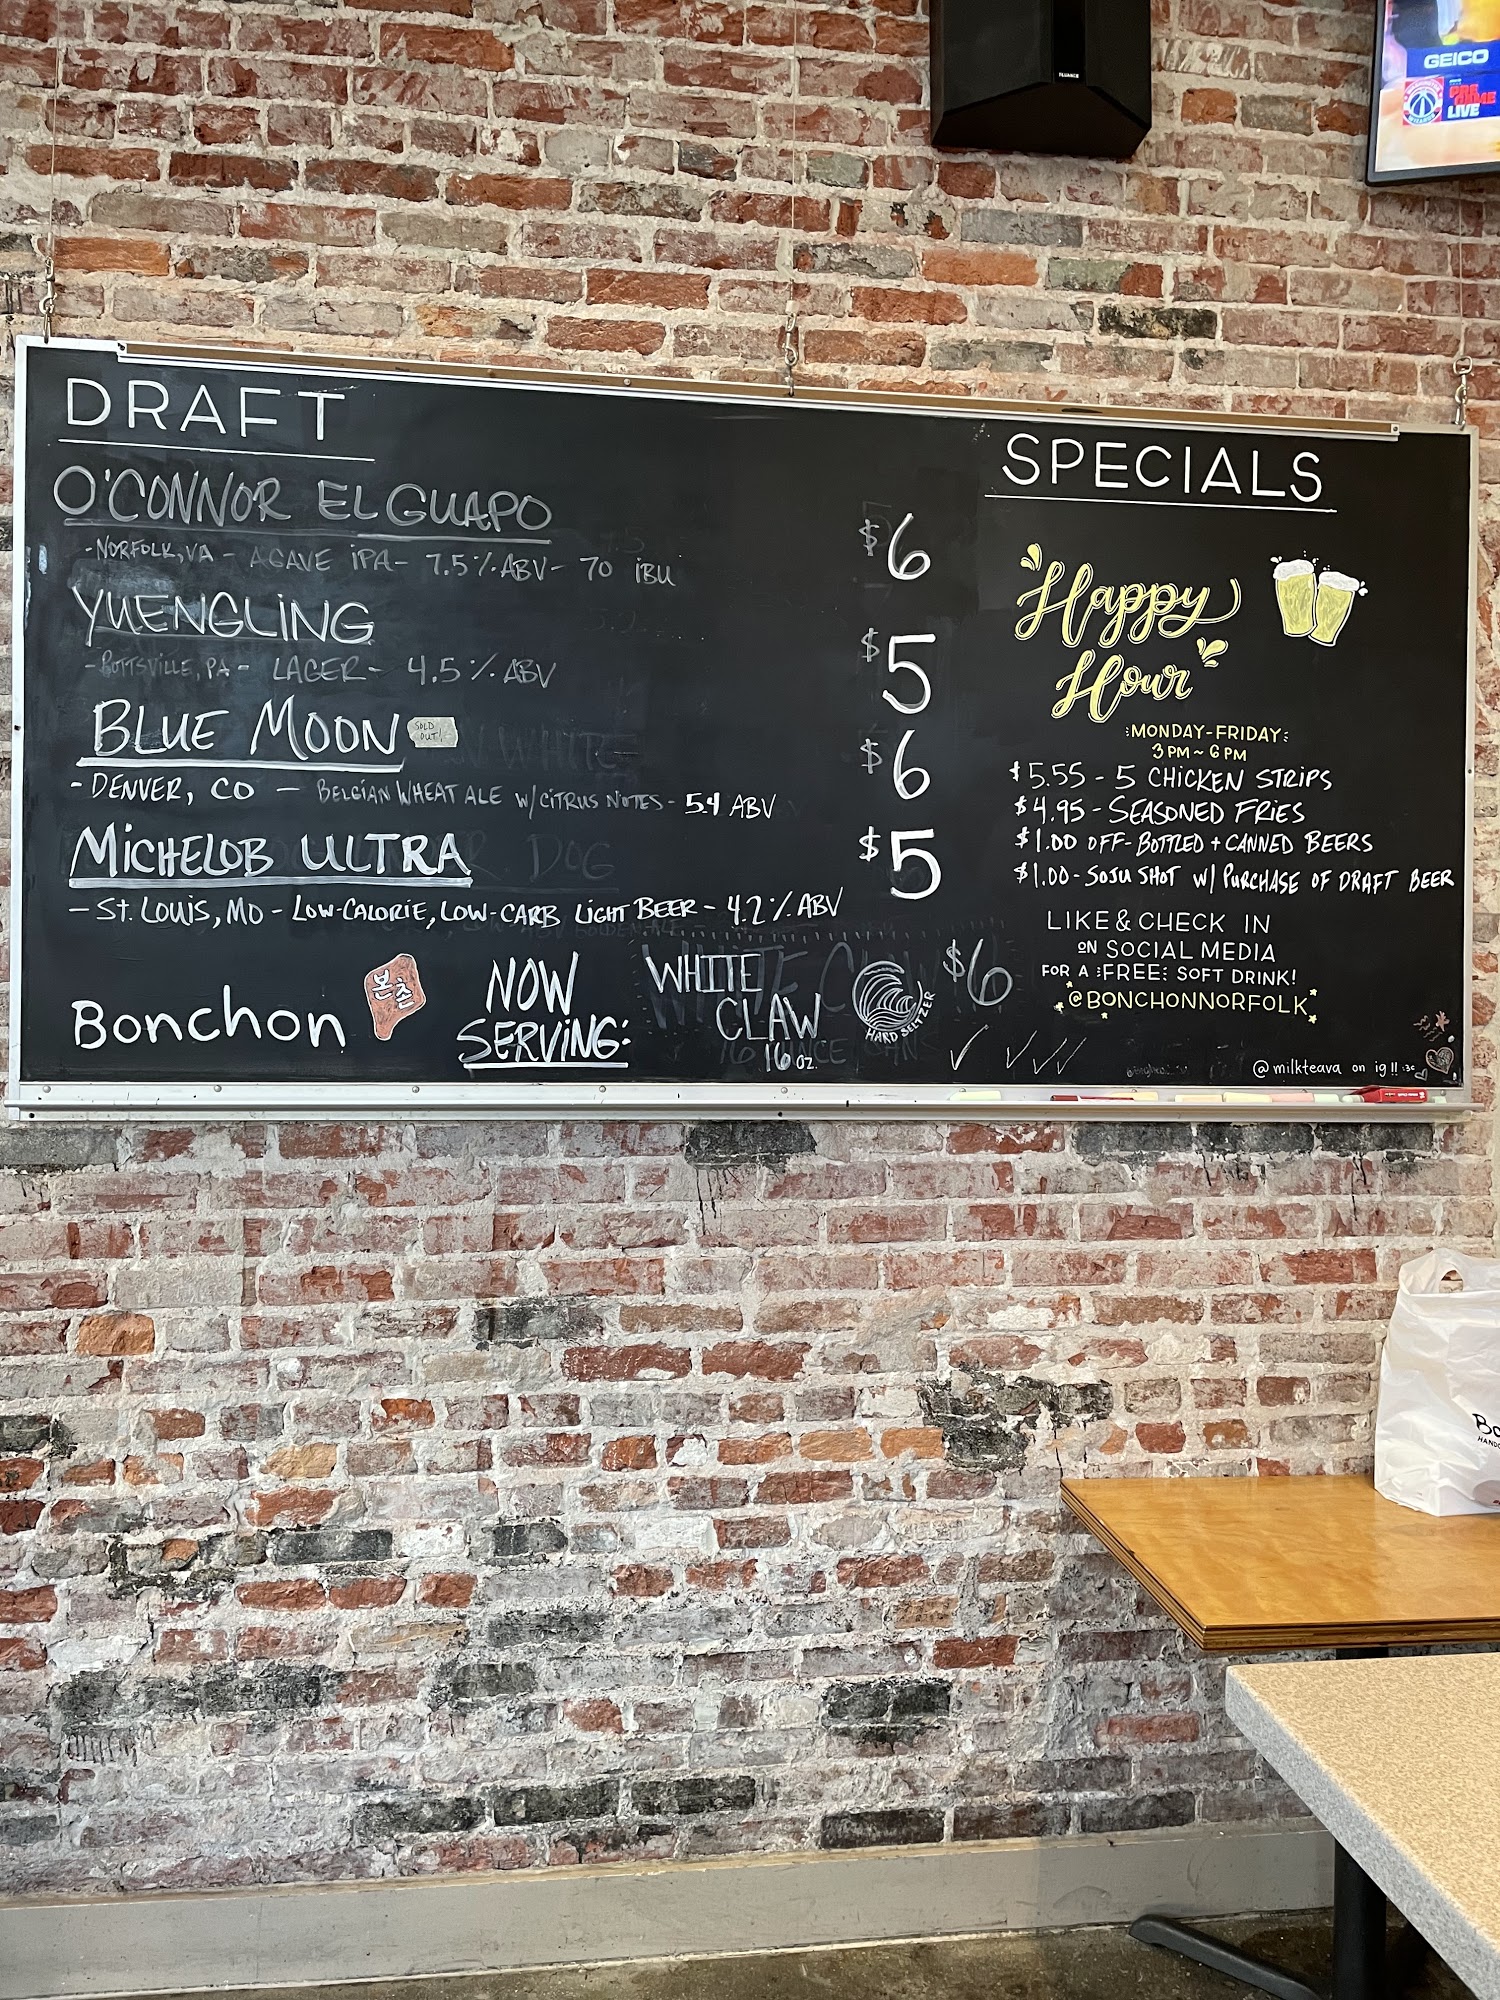 GEICO
PRE
GAME
LIVE
DRAFT
O'CONNOR EL GUAPO
$6
-NORFOLK, VA - AGAVE IPA- 7.5% ABV- 70 IBU
YUENGLING
$5
-POTTSVILLE, PA - LAGER- 4.5% ABV
BLUE MOON
SOLD
OUT!
$6
- DENVER, CO - BELGIAN WHEAT ALE W/ CITRUS NOTES - 5.4 ABV
MICHELOB ULTRA
$5
- ST. LOUIS, MO - LOW-CALORIE, LOW-CARB LIGHT BEER - 4.2% ABV
Bonchon
본촌
NOW
SERVING:
WHITE
CLAW
16 OZ.
HARD SELTZER
$6
SPECIALS
Happy
Hour
MONDAY-FRIDAY
3 PM ~ 6 PM
$5.55 - 5 CHICKEN STRIPS
$4.95 - SEASONED FRIES
$1.00 OFF- BOTTLED + CANNED BEERS
$1.00 - SOJU SHOT W/ PURCHASE OF DRAFT BEER
LIKE & CHECK IN
ON SOCIAL MEDIA
FOR A FREE SOFT DRINK!
@BONCHONNORFOLK
@milkteava on ig!! :3c